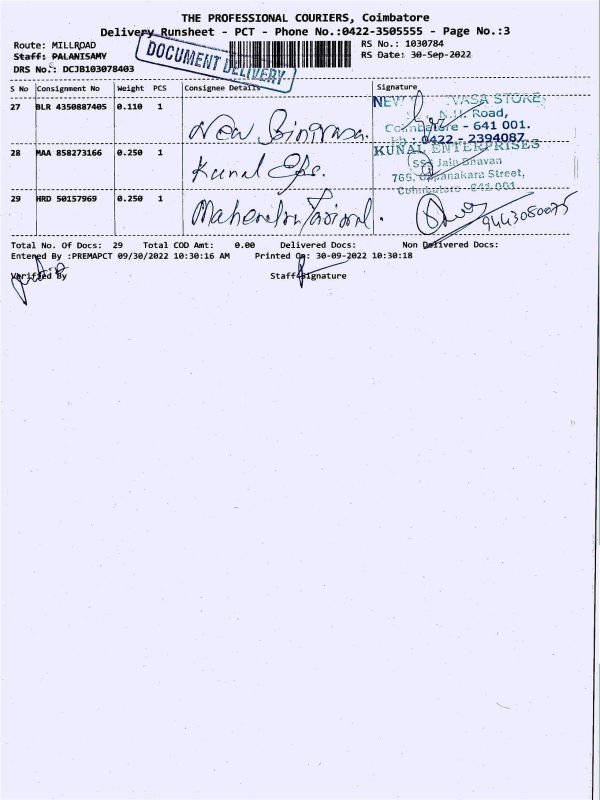 THE PROFESSIONAL COURIERS, Coimbatore
Delivery Runsheet - PCT - Phone No.:0422-3505555 - Page No.:3
Route: MILLROAD
RS No.: 1030784
Staff: PALANISAMY
RS Date: 30-Sep-2022
DRS No.: DCJB103078403
DOCUMENT DELIVERY
S No Consignment No Weight PCS Consignee Details Signature
27 BLR 4350887405 0.110 1
NEW VASA STORES
N.H. Road,
Coimbatore - 641 001.
Ph : 0422 - 2394087
28 MAA 858273166 0.250 1 Kunal
KUNAL ENTERPRISES
Jain Bhavan
Street,
Coimbatore - 641 001
29 HRD 50157969 0.250 1
9443050075
Total No. Of Docs: 29 Total COD Amt: 0.00 Delivered Docs: Non Delivered Docs:
Entered By :PREMAPCT 09/30/2022 10:30:16 AM Printed On: 30-09-2022 10:30:18
Verified By Staff Signature